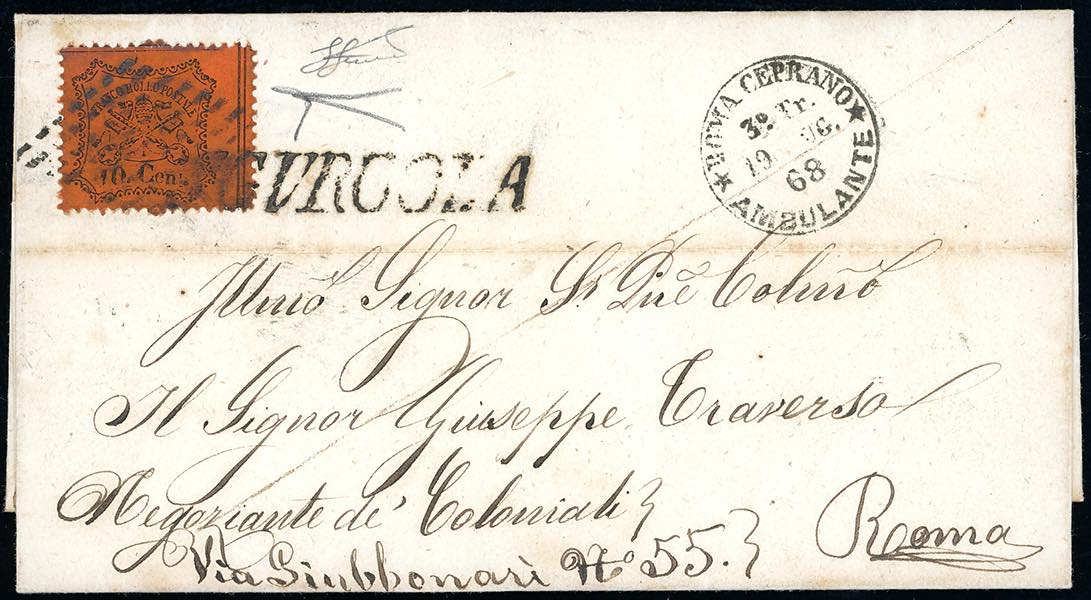 FRANCO BOLLO POSTALE
10 Cent
GURGOLA
★ ROMA CEPRANO ★
3º Tr.
19
68
AMBULANTE
Illmo Signor Pne Colmo
Il Signor Giuseppe Traverso
Negoziante de' Coloniali
Via Giubbonari Nº 55.
Roma